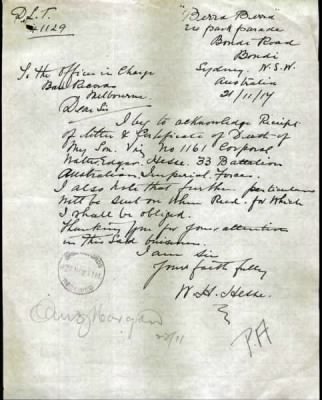 D.L.T.
41129
"Berra Berra"
Park Parade
Bondi Road
Bondi
Sydney. N.S.W.
Australia
21/11/17
To the Officer in Charge
Base Records
Melbourne.
Dear Sir
I beg to acknowledge Receipt
of letter & Certificate of Death of
My Son. Viz No 1161 Corporal
Walter Edgar Hesse. 33 Battalion
Australian Imperial Force.
I also note that further particulars
will be sent on when Recd. for which
I shall be obliged.
Thanking you for your attention
in this Sad business.
I am Sir
Yours faithfully
W. H. Hesse.
P.A